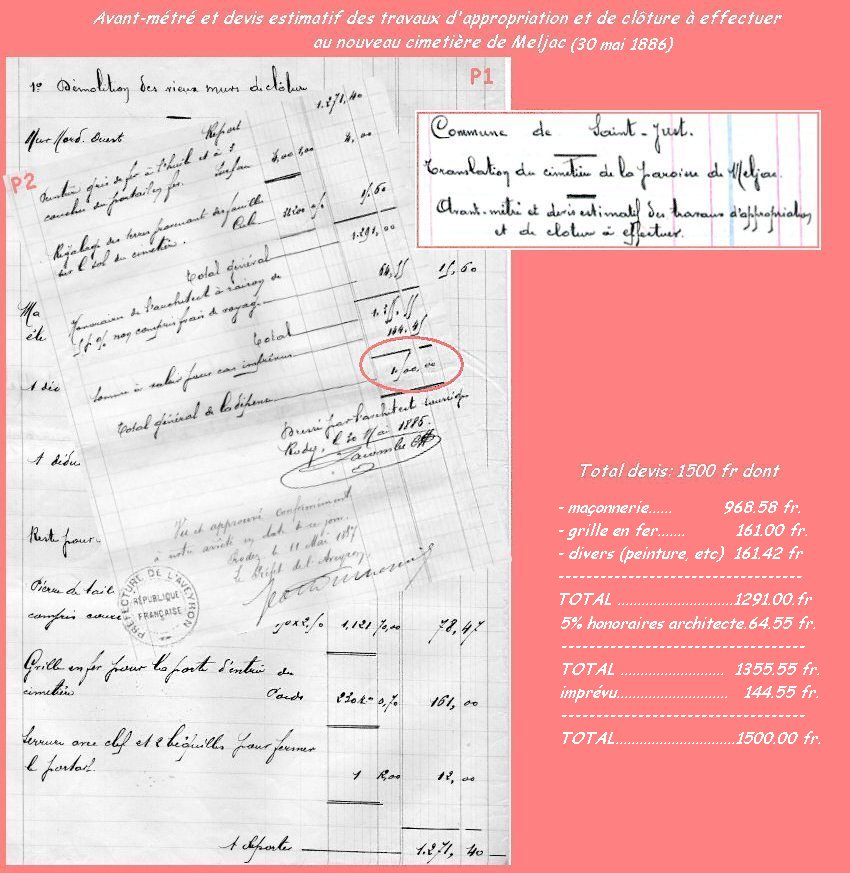 Avant-métré et devis estimatif des travaux d'appropriation et de clôture à effectuer
au nouveau cimetière de Meljac (30 mai 1886)
P1
1º Démolition des vieux murs de clôture
Mur Nord-Ouest
P2
Report 1.271,40
gris de fer à l'huile et à 3
couches du portail en fer. 4,00
Régalage des terres provenant des fouilles
sur le sol du cimetière.
Total général 1.291,00
Honoraires de l'architecte à raison de
5 p % non compris frais de voyage 64,55
Total 1.355,55
Somme à valoir pour cas imprévus 144.45
Total général de la dépense 1500,00
Dressé par l'architecte soussigné
Rodez, le 30 Mai 1886.
Vu et approuvé conformément
à notre arrêté en date de ce jour.
Rodez le 11 Mai 1887
Le Préfet de l'Aveyron
PRÉFECTURE DE L'AVEYRON
RÉPUBLIQUE
FRANÇAISE
Commune de Saint-Just.
Translation du cimetière de la paroisse de Meljac.
Avant-métré et devis estimatif des travaux d'appropriation
et de clôture à effectuer.
15,60
Ma
été
1 déc
1 dédu
Reste pour
Pierre de tail
compris 1,121 70,00 78,47
Grille en fer pour la porte d'entrée du
cimetière Poids 230k 0,70 161,00
Serrure avec clef et 2 béquilles pour fermer
le portail 1 12,00 12,00
A reporter 1.271,40
Total devis: 1500 fr dont
- maçonnerie...... 968.58 fr.
- grille en fer....... 161.00 fr.
- divers (peinture, etc) 161.42 fr
----------------------------------
TOTAL ............................1291.00.fr
5% honoraires architecte.64.55 fr.
----------------------------------
TOTAL ......................... 1355.55 fr.
imprévu.......................... 144.55 fr.
----------------------------------
TOTAL.............................1500.00 fr.